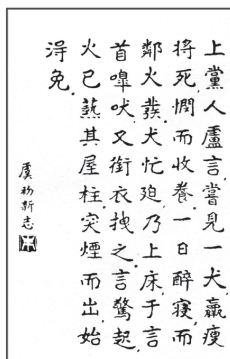 上黨人盧言嘗見一犬羸瘦
將死憫而收養一日醉寢而
鄰火發犬忙迫乃上床于言
首嘷吠又銜衣拽之言驚起
火已爇其屋柱突煙而出始
淂免
虞初新志